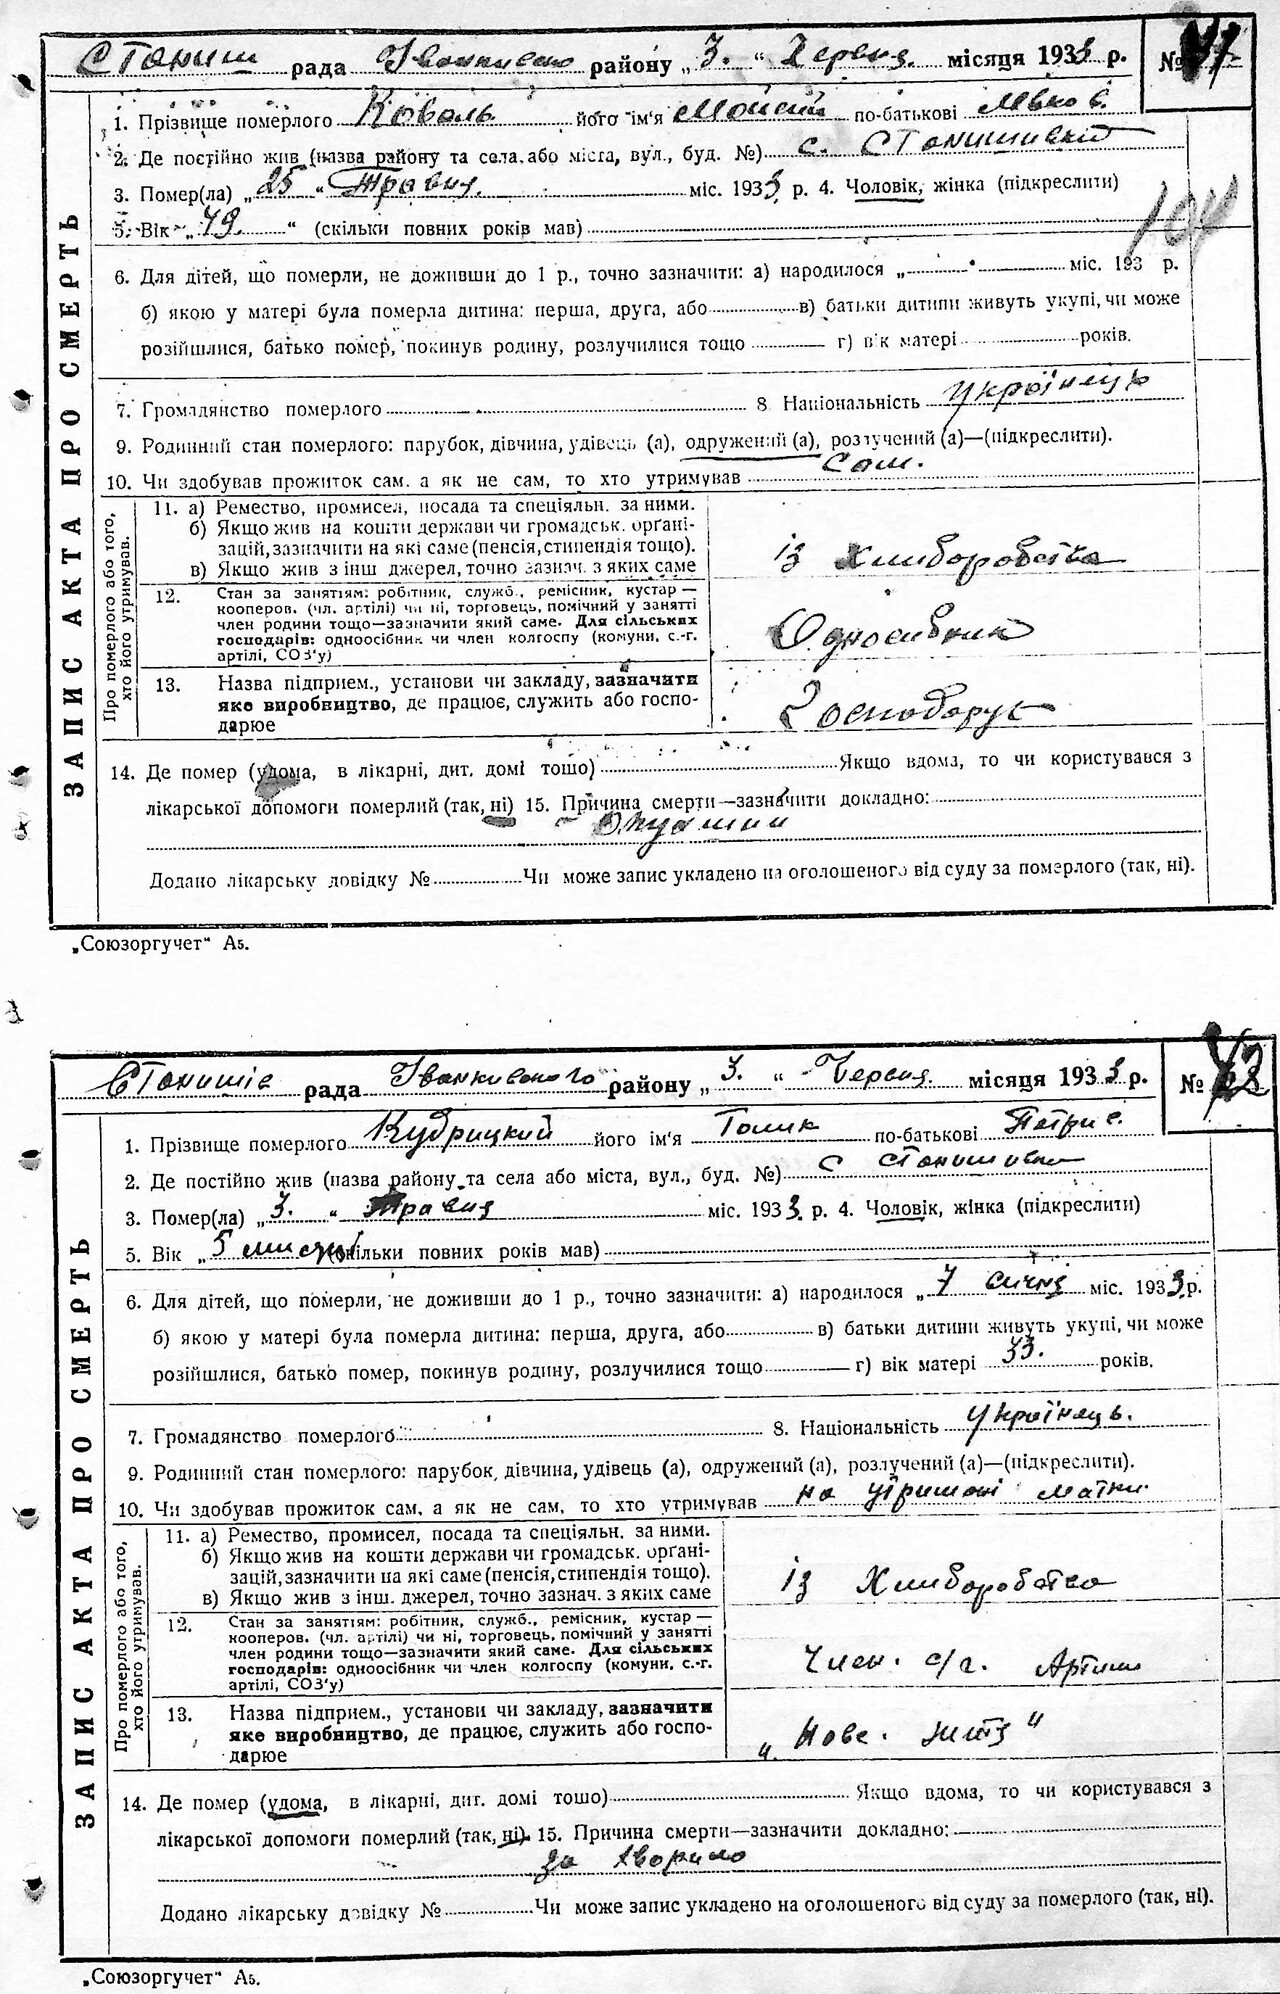 Станиш рада Іванківсько району „3.“ Червня. місяця 1933 р. №
ЗАПИС АКТА ПРО СМЕРТЬ
1. Прізвище померлого Коваль його ім'я Мойсій по-батькові
2. Де постійно жив (назва району та села або міста, вул., буд. №) с. Станишівки
3. Помер(ла) „25“ Травня. міс. 1933 р. 4. Чоловік, жінка (підкреслити)
104
5. Вік „49.“ (скільки повних років мав)
6. Для дітей, що померли, не доживши до 1 р., точно зазначити: а) народилося „ міс. 193 р.
б) якою у матері була померла дитина: перша, друга, або в) батьки дитини живуть укупі, чи може
розійшлися, батько помер, покинув родину, розлучилися тощо г) вік матері років.
7. Громадянство померлого 8 Національність Українець
9. Родинний стан померлого: парубок, дівчина, удівець (а), одружений (а), розлучений (а)—(підкреслити).
10. Чи здобував прожиток сам, а як не сам, то хто утримував сам.
Про померлого або того, хто його утримував.
11. а) Ремество, промисел, посада та спеціяльн. за ними.
б) Якщо жив на кошти держави чи громадськ. орґані-
зацій, зазначити на які саме (пенсія, стипендія тощо).
в) Якщо жив з інш джерел, точно зазнач. з яких саме
із Хлиборобства
12. Стан за занятіям: робітник, служб., ремісник, кустар—
кооперов. (чл. артілі) чи ні, торговець, помічний у занятті
член родини тощо—зазначити який саме. Для сільських
господарів: одноосібник чи член колгоспу (комуни, с.-г.
артілі, СОЗ'у)
Односибник
13. Назва підприєм., установи чи закладу, зазначити
яке виробництво, де працює, служить або госпо-
дарює
Господарує
14. Де помер (удома, в лікарні, дит. домі тошо) Якщо вдома, то чи користувався з
лікарської допомоги померлий (так, ні) 15. Причина смерти—зазначити докладно:
Додано лікарську довідку № Чи може запис укладено на оголошеного від суду за померлого (так, ні).
„Союзоргучет“ А5.
Станишів рада Іванківського району „3.“ Червня. місяця 1933 р. №
ЗАПИС АКТА ПРО СМЕРТЬ
1. Прізвище померлого Кудрицкий його ім'я Толик по-батькові Петрис.
2. Де постійно жив (назва району та села або міста, вул., буд. №) с Станишивки
3. Помер(ла) „3.“ Травня міс. 1933. р. 4. Чоловік, жінка (підкреслити)
5. Вік „5 мисяци (скільки повних років мав)
6. Для дітей, що померли, не доживши до 1 р., точно зазначити: а) народилося „7 січня міс. 1933 р.
б) якою у матері була померла дитина: перша, друга, або в) батьки дитини живуть укупі, чи може
розійшлися, батько помер, покинув родину, розлучилися тощо г) вік матері 33. років.
7. Громадянство померлого 8. Національність Українець.
9. Родинний стан померлого: парубок, дівчина, удівець (а), одружений (а), розлучений (а)—(підкреслити).
10. Чи здобував прожиток сам, а як не сам, то хто утримував на утримані матки
Про померлого або того, хто його утримував.
11. а) Ремество, промисел, посада та спеціяльн. за ними.
б) Якщо жив на кошти держави чи громадськ. орґані-
зацій, зазначити на які саме (пенсія, стипендія тощо).
в) Якщо жив з інш. джерел, точно зазнач. з яких саме
із Хлиборобства
12. Стан за занятіям: робітник, служб., ремісник, кустар—
кооперов. (чл. артілі) чи ні, торговець, помічний у занятті
член родини тощо—зазначити який саме. Для сільських
господарів: одноосібник чи член колгоспу (комуни, с.-г.
артілі, СОЗ'у)
Член. с/г. Артили
13. Назва підприєм., установи чи закладу, зазначити
яке виробництво, де працює, служить або госпо-
дарює
„Нове. життя“
14. Де помер (удома, в лікарні, дит. домі тошо) Якщо вдома, то чи користувався з
лікарської допомоги померлий (так, ні) 15. Причина смерти—зазначити докладно:
за хворило
Додано лікарську довідку № Чи може запис укладено на оголошеного від суду за померлого (так, ні).
„Союзоргучет“ А5.